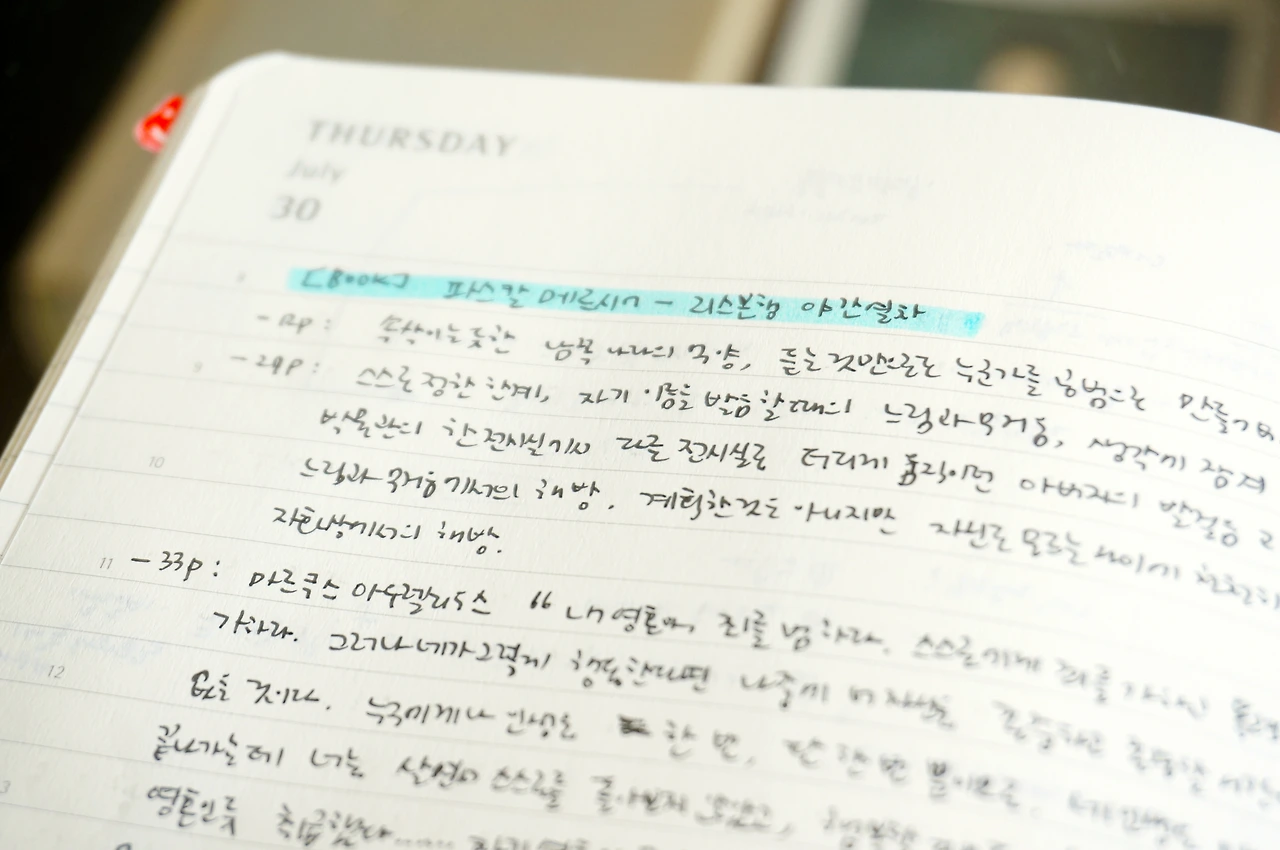 THURSDAY
July
30
[BOOK] 파스칼 메르시어 - 리스본행 야간열차
- 12p : 속삭이는듯한 남쪽 나라의 억양, 듣는것만으로도 누군가를 공범으로 만들기
9
- 29p : 스스로 정한 한계, 자기 이름을 발음할때의 느림과 무거움, 생각에 잠겨
박물관의 한 전시실에서 다른 전시실로 더디게 움직이던 아버지의 발걸음
10
느림과 무거움에서의 해방. 계획한것은 아니지만 자신도 모르는 사이에
자화상에서의 해방.
11
- 33p : 마르쿠스 아우렐리우스 “ 내 영혼아, 죄를 범하라. 스스로에게 죄를
가하라. 그러나 네가 그렇게 행동한다면 나중에 너 자신을 존중하고
12
없을 것이다. 누구에게나 인생은 한 번, 단 한 번 뿐이므로. 네 인생은
끝나가는데 너는 살면서 스스로를 돌아보지 않았고, 행복할
영혼인듯 취급했다......